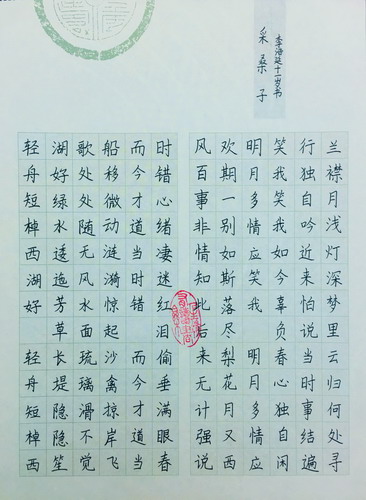 采桑子
兰襟月浅灯深梦里云归何处寻
行独自吟近来怕说当时事结遍
笑我笑我如今辜负春心独自闲
明月多情应笑我 明月多情应
欢期一别如斯落尽梨花月又西
风百事非情知此后来无计强说
时错心绪凄迷红泪偷垂满眼春
而今才道当时错 而今才道当
船移微动涟漪惊起沙禽掠岸飞
歌处处随无风水面琉璃滑不觉
湖好绿水逶迤芳草长堤隐隐笙
轻舟短棹西湖好 轻舟短棹西